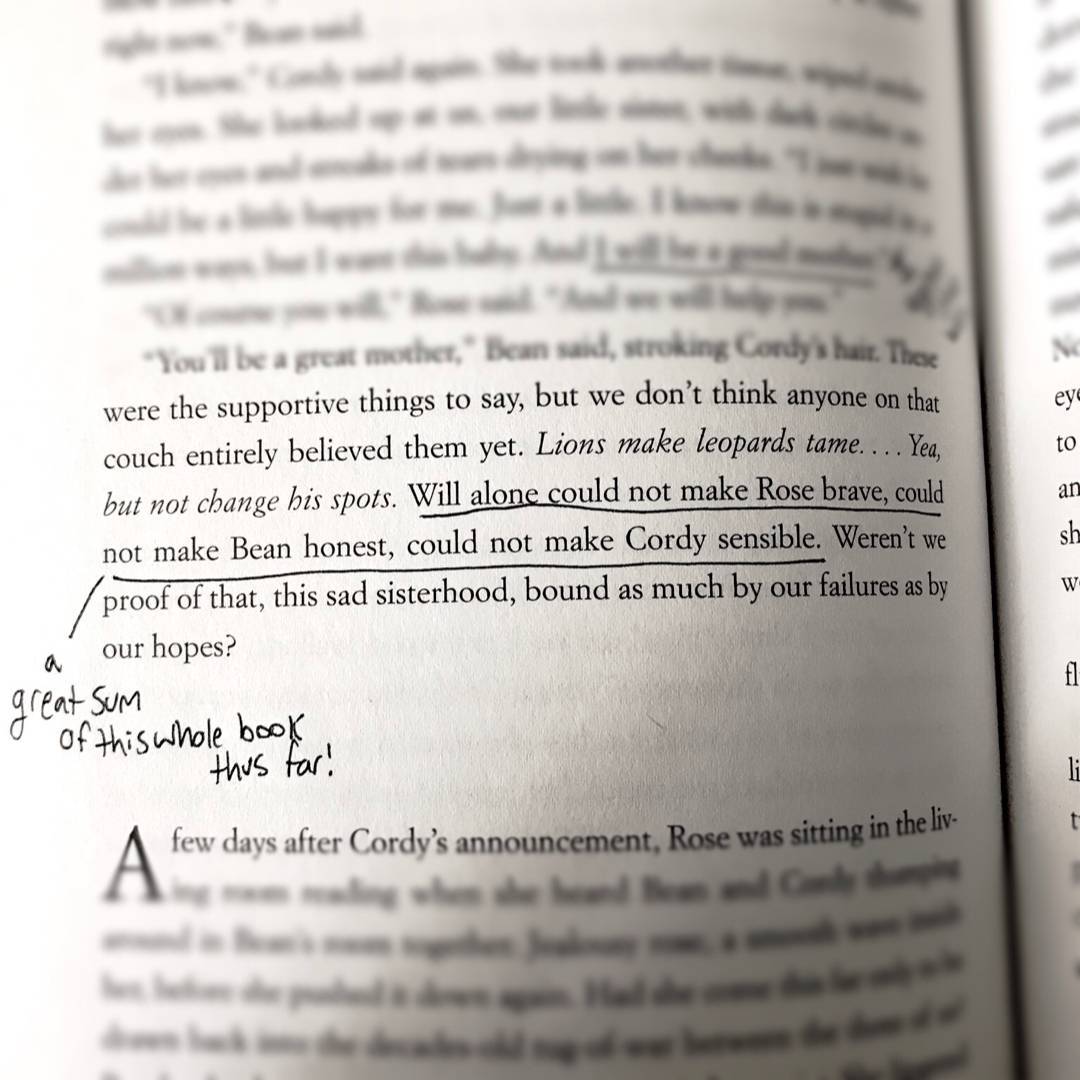 right now," Bean said.
"I know," Cordy said again. She took another tissue, wiped under
her eyes. She looked up at us, our little sister, with dark circles un-
der her eyes and streaks of tears drying on her cheeks. "I just wish
could be a little happy for me. Just a little. I know this is stupid in a
million ways, but I want this baby. And I will be a good mother."
"Of course you will," Rose said. "And we will help you."
"You'll be a great mother," Bean said, stroking Cordy's hair. These
were the supportive things to say, but we don't think anyone on that
couch entirely believed them yet. Lions make leopards tame. . . . Yea,
but not change his spots. Will alone could not make Rose brave, could
not make Bean honest, could not make Cordy sensible. Weren't we
proof of that, this sad sisterhood, bound as much by our failures as by
our hopes?
a
great sum
of this whole book
thus far!
A few days after Cordy's announcement, Rose was sitting in the liv-
ing room reading when she heard Bean and Cordy thumping
around in Bean's room together. Jealousy rose, a smooth wave inside
her, before she pushed it down again. Had she come this far only to be
drawn back into the decades-old tug-of-war between the three of us?
No
eye
to
an
sh
w
fl
li
t